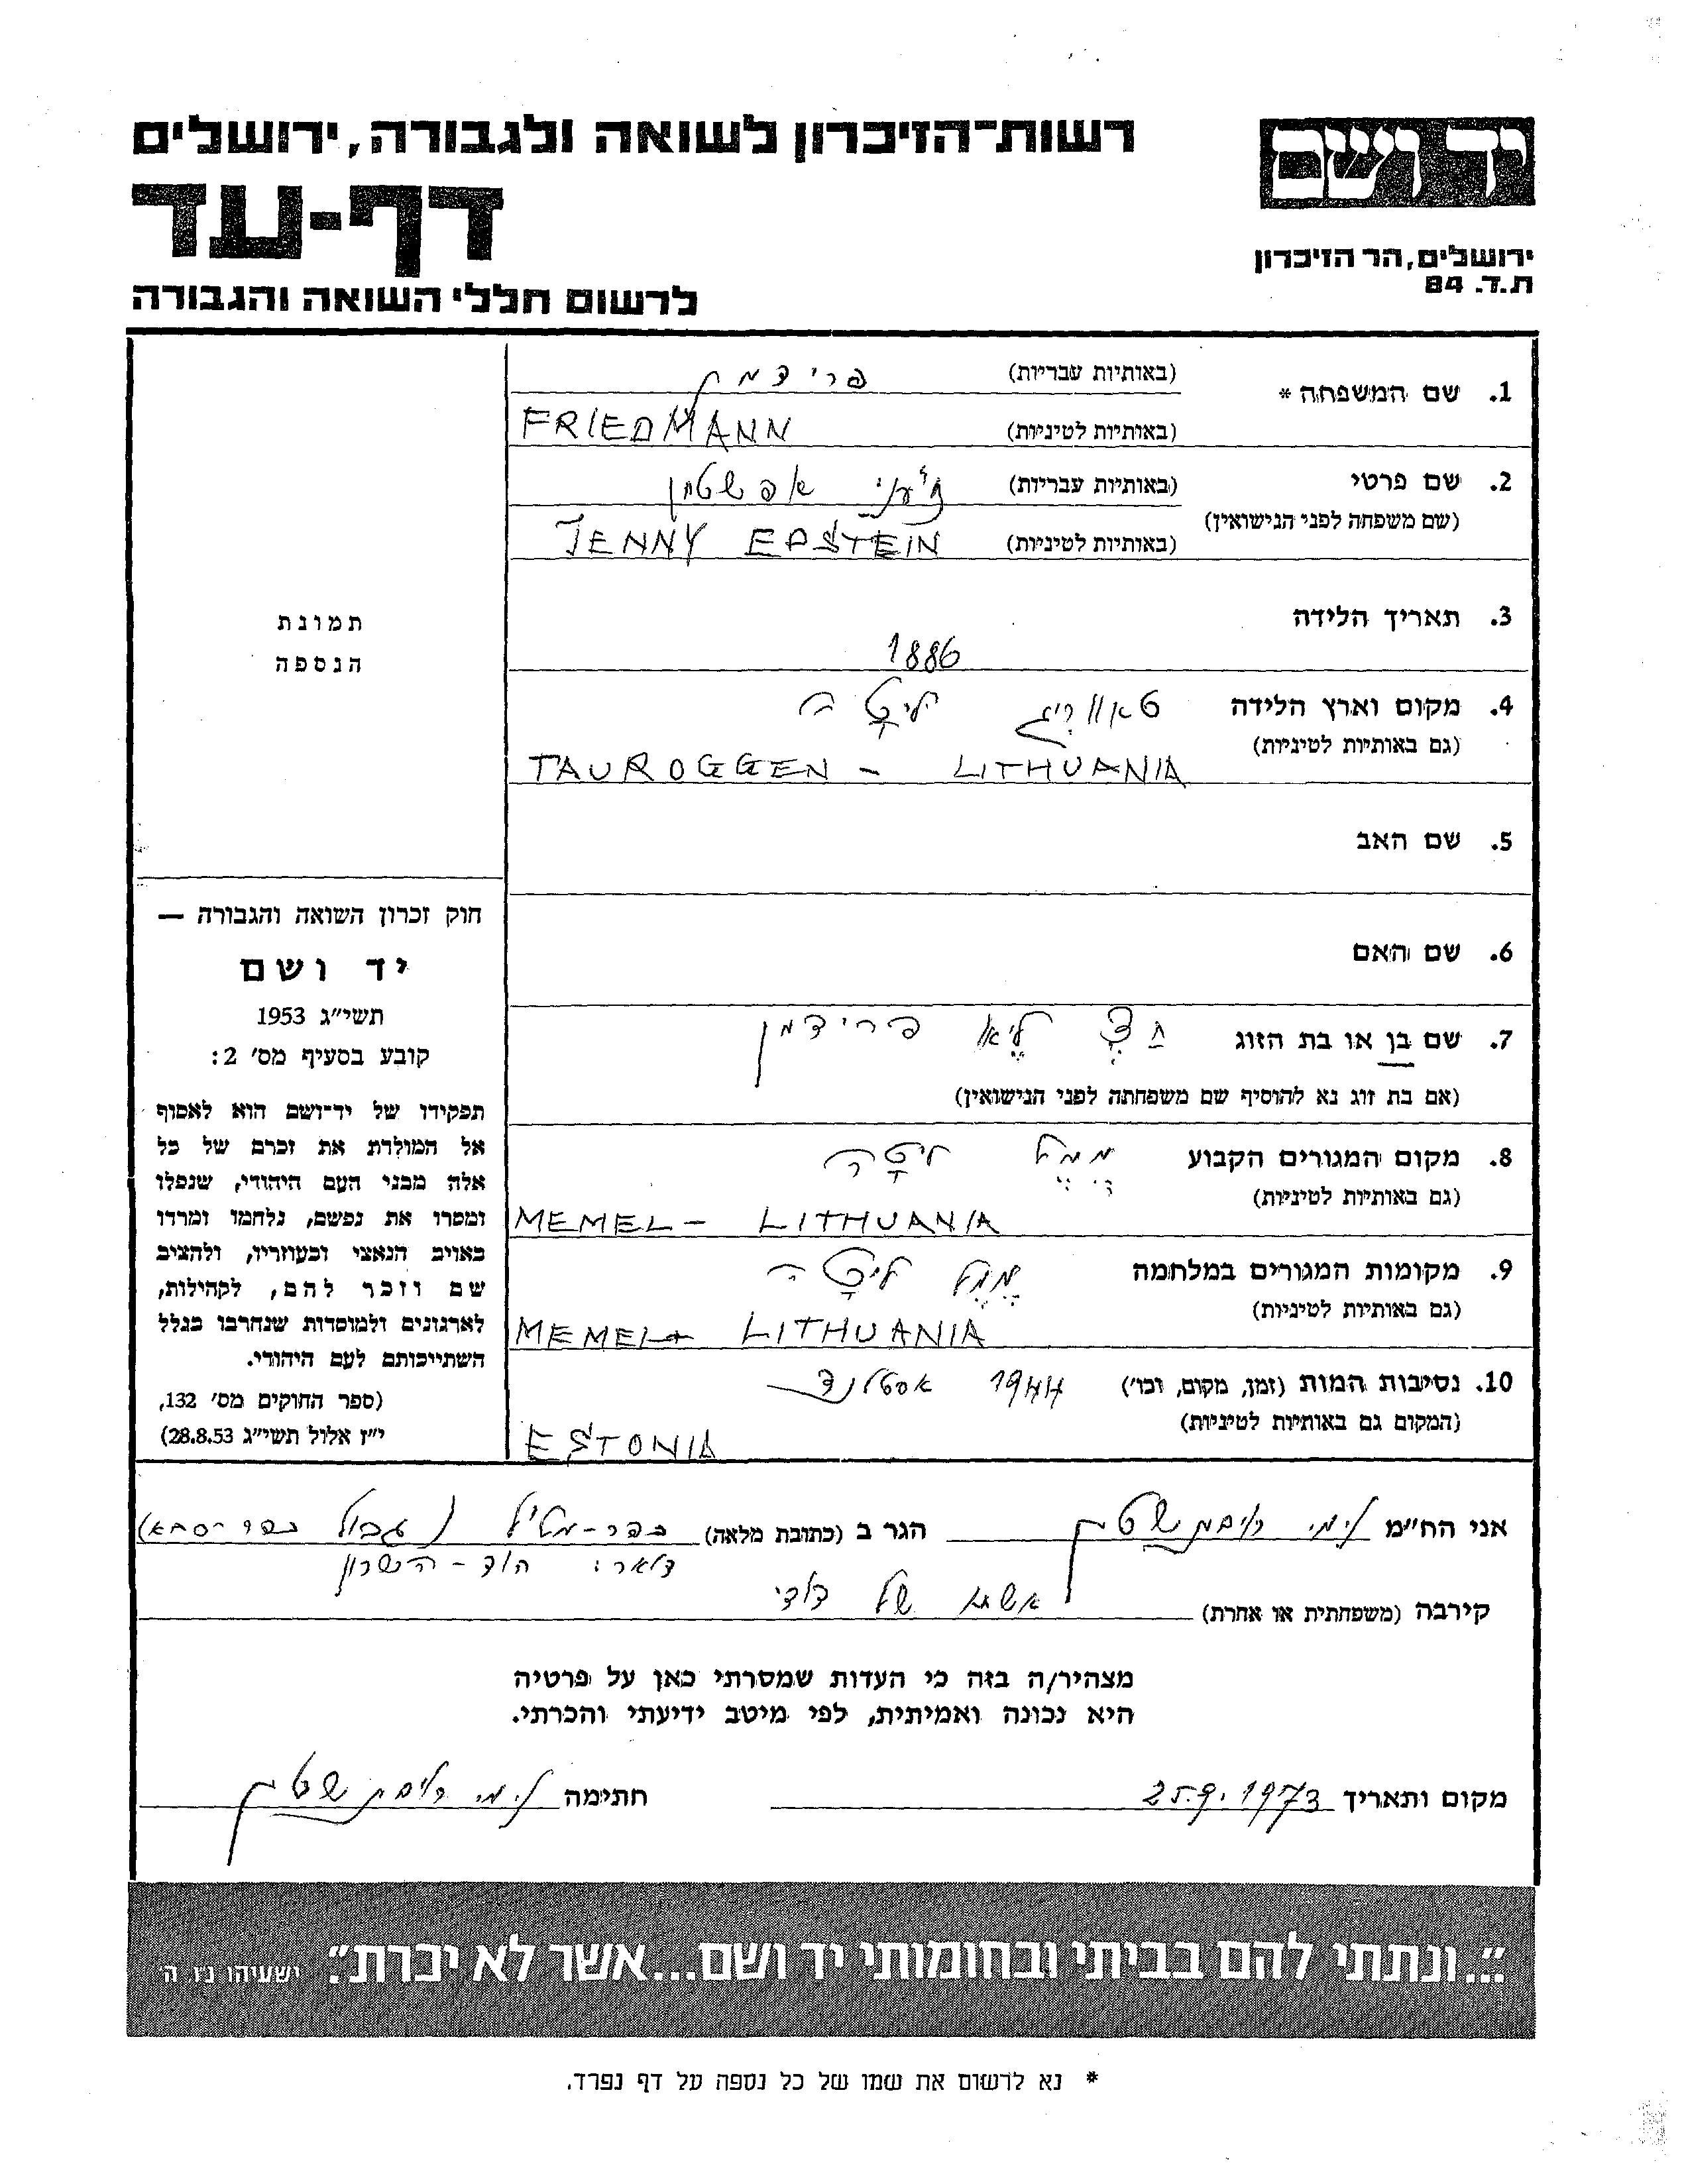 יד ושם
ירושלים, הר הזיכרון
ת.ד. 84
רשות־הזיכרון לשואה ולגבורה, ירושלים
דף-עד
לרשום חללי השואה והגבורה
1. שם המשפחה *
(באותיות עבריות) פרידמן
(באותיות לטיניות) FRIEDMANN
2. שם פרטי
(שם משפחה לפני הנישואין)
(באותיות עבריות) ג'ני אפשטין
(באותיות לטיניות) JENNY EPSTEIN
3. תאריך הלידה
1886
4. מקום וארץ הלידה טאווריג ליטה
(גם באותיות לטיניות)
TAUROGGEN - LITHUANIA
5. שם האב
6. שם האם
7. שם בן או בת הזוג פרידמן
(אם בת זוג נא להוסיף שם משפחתה לפני הנישואין)
8. מקום המגורים הקבוע ממל ליטה
(גם באותיות לטיניות)
MEMEL - LITHUANIA
9. מקומות המגורים במלחמה ממל ליטה
(גם באותיות לטיניות)
MEMEL - LITHUANIA
10. נסיבות המות (זמן, מקום, וכו') 1944 אסטלנד
(המקום גם באותיות לטיניות)
ESTONIA
תמונת
הנספה
חוק זכרון השואה והגבורה —
יד ושם
תשי״ג 1953
קובע בסעיף מס' 2:
תפקידו של יד־ושם הוא לאסוף
אל המולדת את זכרם של כל
אלה מבני העם היהודי, שנפלו
ומסרו את נפשם, נלחמו ומרדו
באויב הנאצי ובעוזריו, ולהציב
שם וזכר להם, לקהילות,
לארגונים ולמוסדות שנחרבו בגלל
השתייכותם לעם היהודי.
(ספר החוקים מס' 132,
י״ז אלול תשי״ג 28.8.53)
אני הח״מ הגר ב (כתובת מלאה) כפר-מל״ל
דואר: הוד-השרון
קירבה (משפחתית או אחרת) אשתו של דודי
מצהיר/ה בזה כי העדות שמסרתי כאן על פרטיה
היא נכונה ואמיתית, לפי מיטב ידיעתי והכרתי.
מקום ותאריך 25.9.1973 חתימה
״...ונתתי להם בביתי ובחומותי יד ושם...אשר לא יכרת״. ישעיהו נ״ו ה'
* נא לרשום את שמו של כל נספה על דף נפרד.